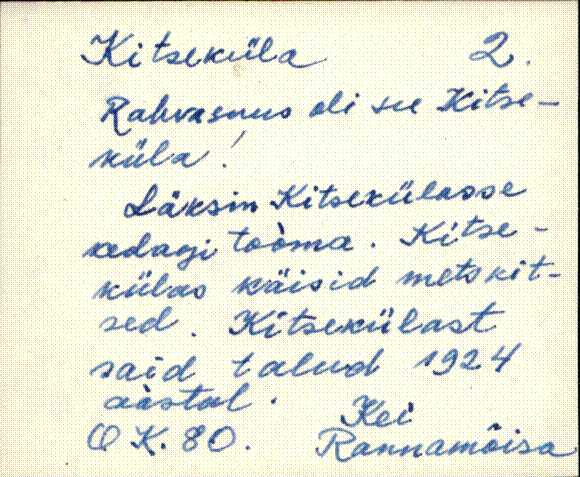 Kitseküla 2.
Rahvasuus oli see Kitse-
küla!
Läksin Kitsekülasse
kedagi tooma. Kitse-
külas käisid metskit-
sed. Kitsekülast
said talud 1924
aastal.
O K. 80. Kei
Rannamõisa